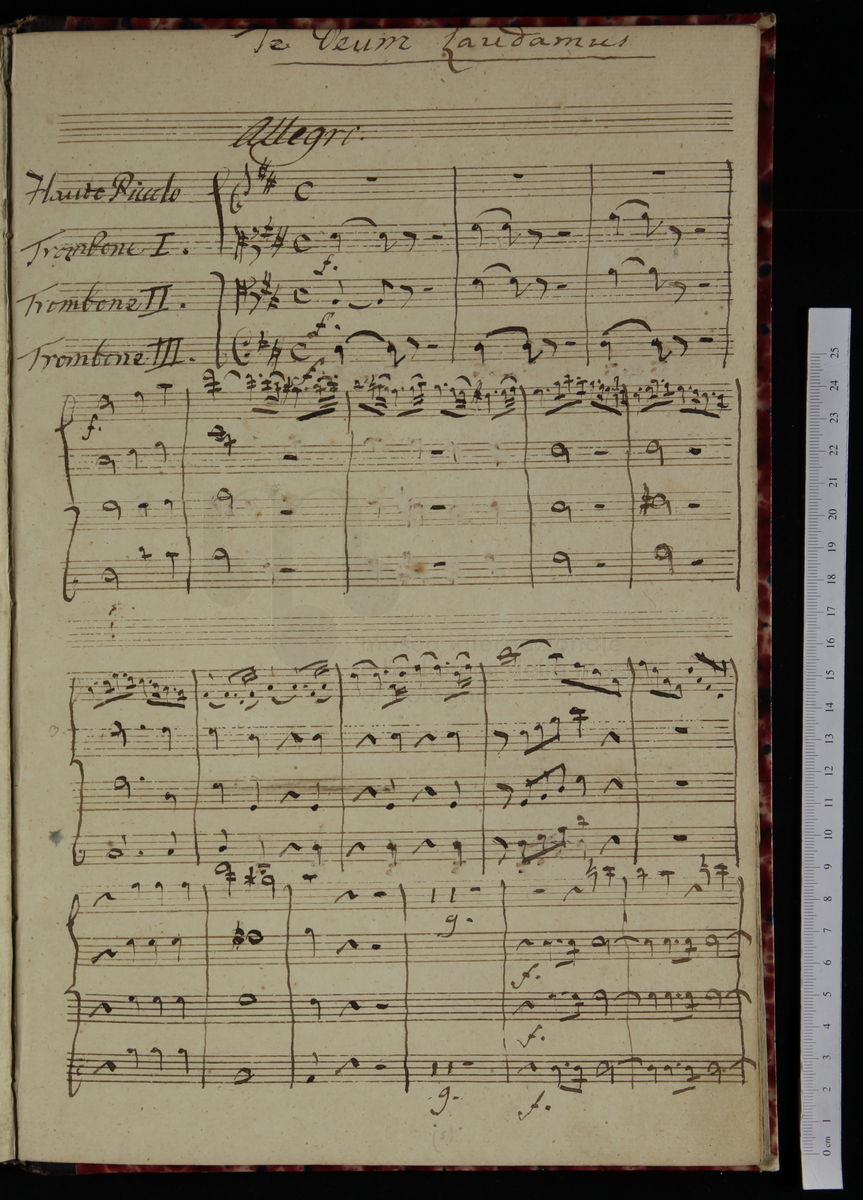 Te Deum Laudamus
Allegro.
Flauto Piccolo
Trombone I.
f.
Trombone II.
f.
Trombone III.
f.
f.
9.
f.
f.
9.
f.
25
24
23
22
21
20
19
18
17
16
15
14
13
12
11
10
9
8
7
6
5
4
3
2
1
0 cm